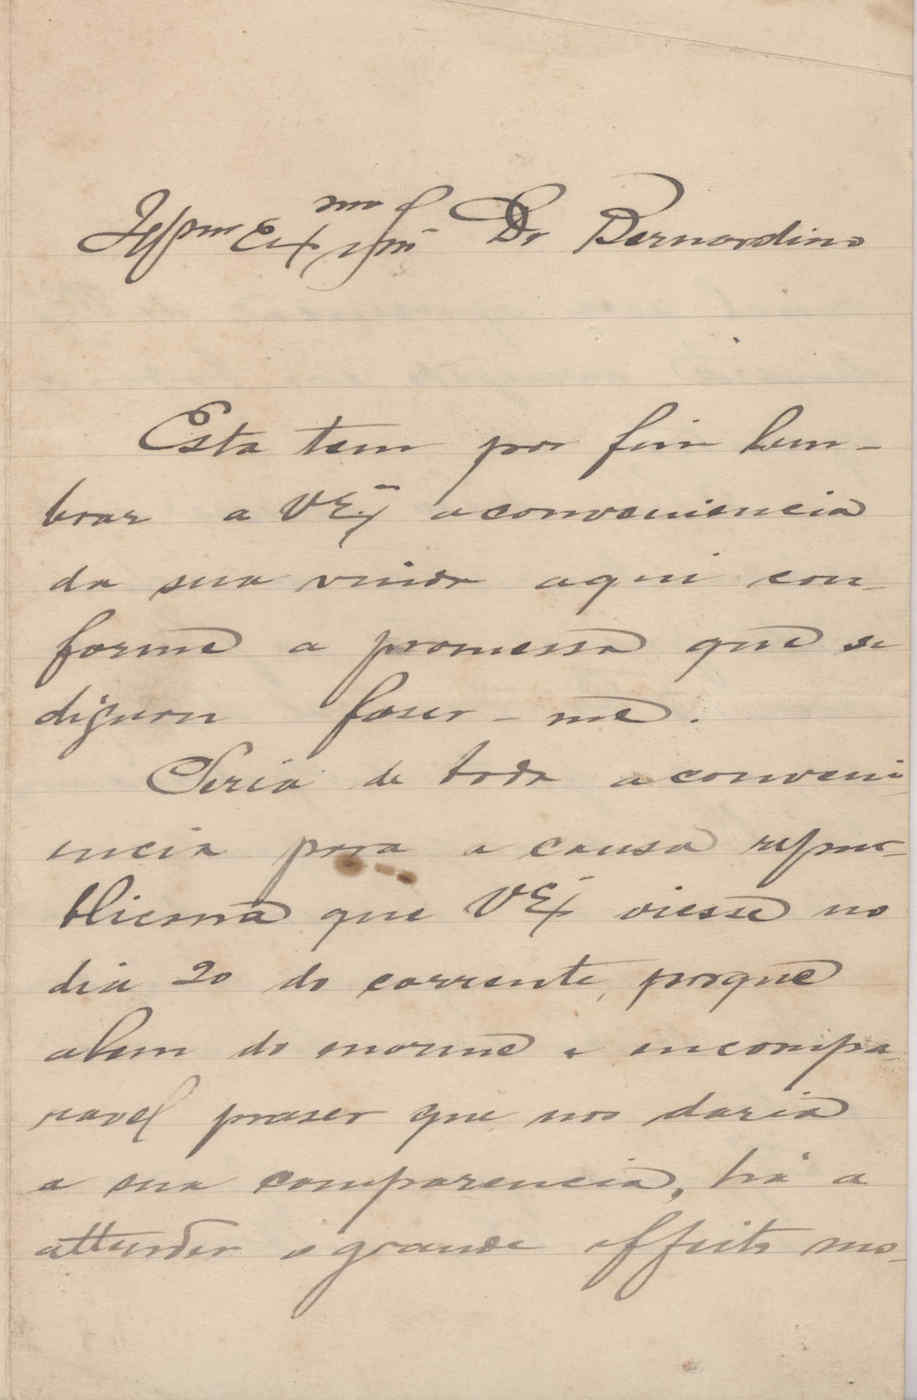 Ex mo Snr Dr Bernardino
Esta tem por fim lem-
brar a V Ex a conveniencia
da sua vinda aqui con-
forme a promessa que se
dignou faser-me.
Seria de toda a conveni
encia para a causa repu-
blicana que V Ex viesse no
dia 20 do corrente, porque
alem do enorme e encompa-
ravel praser que nos daria
a sua comparencia, há a
attender o grande effeito mo-